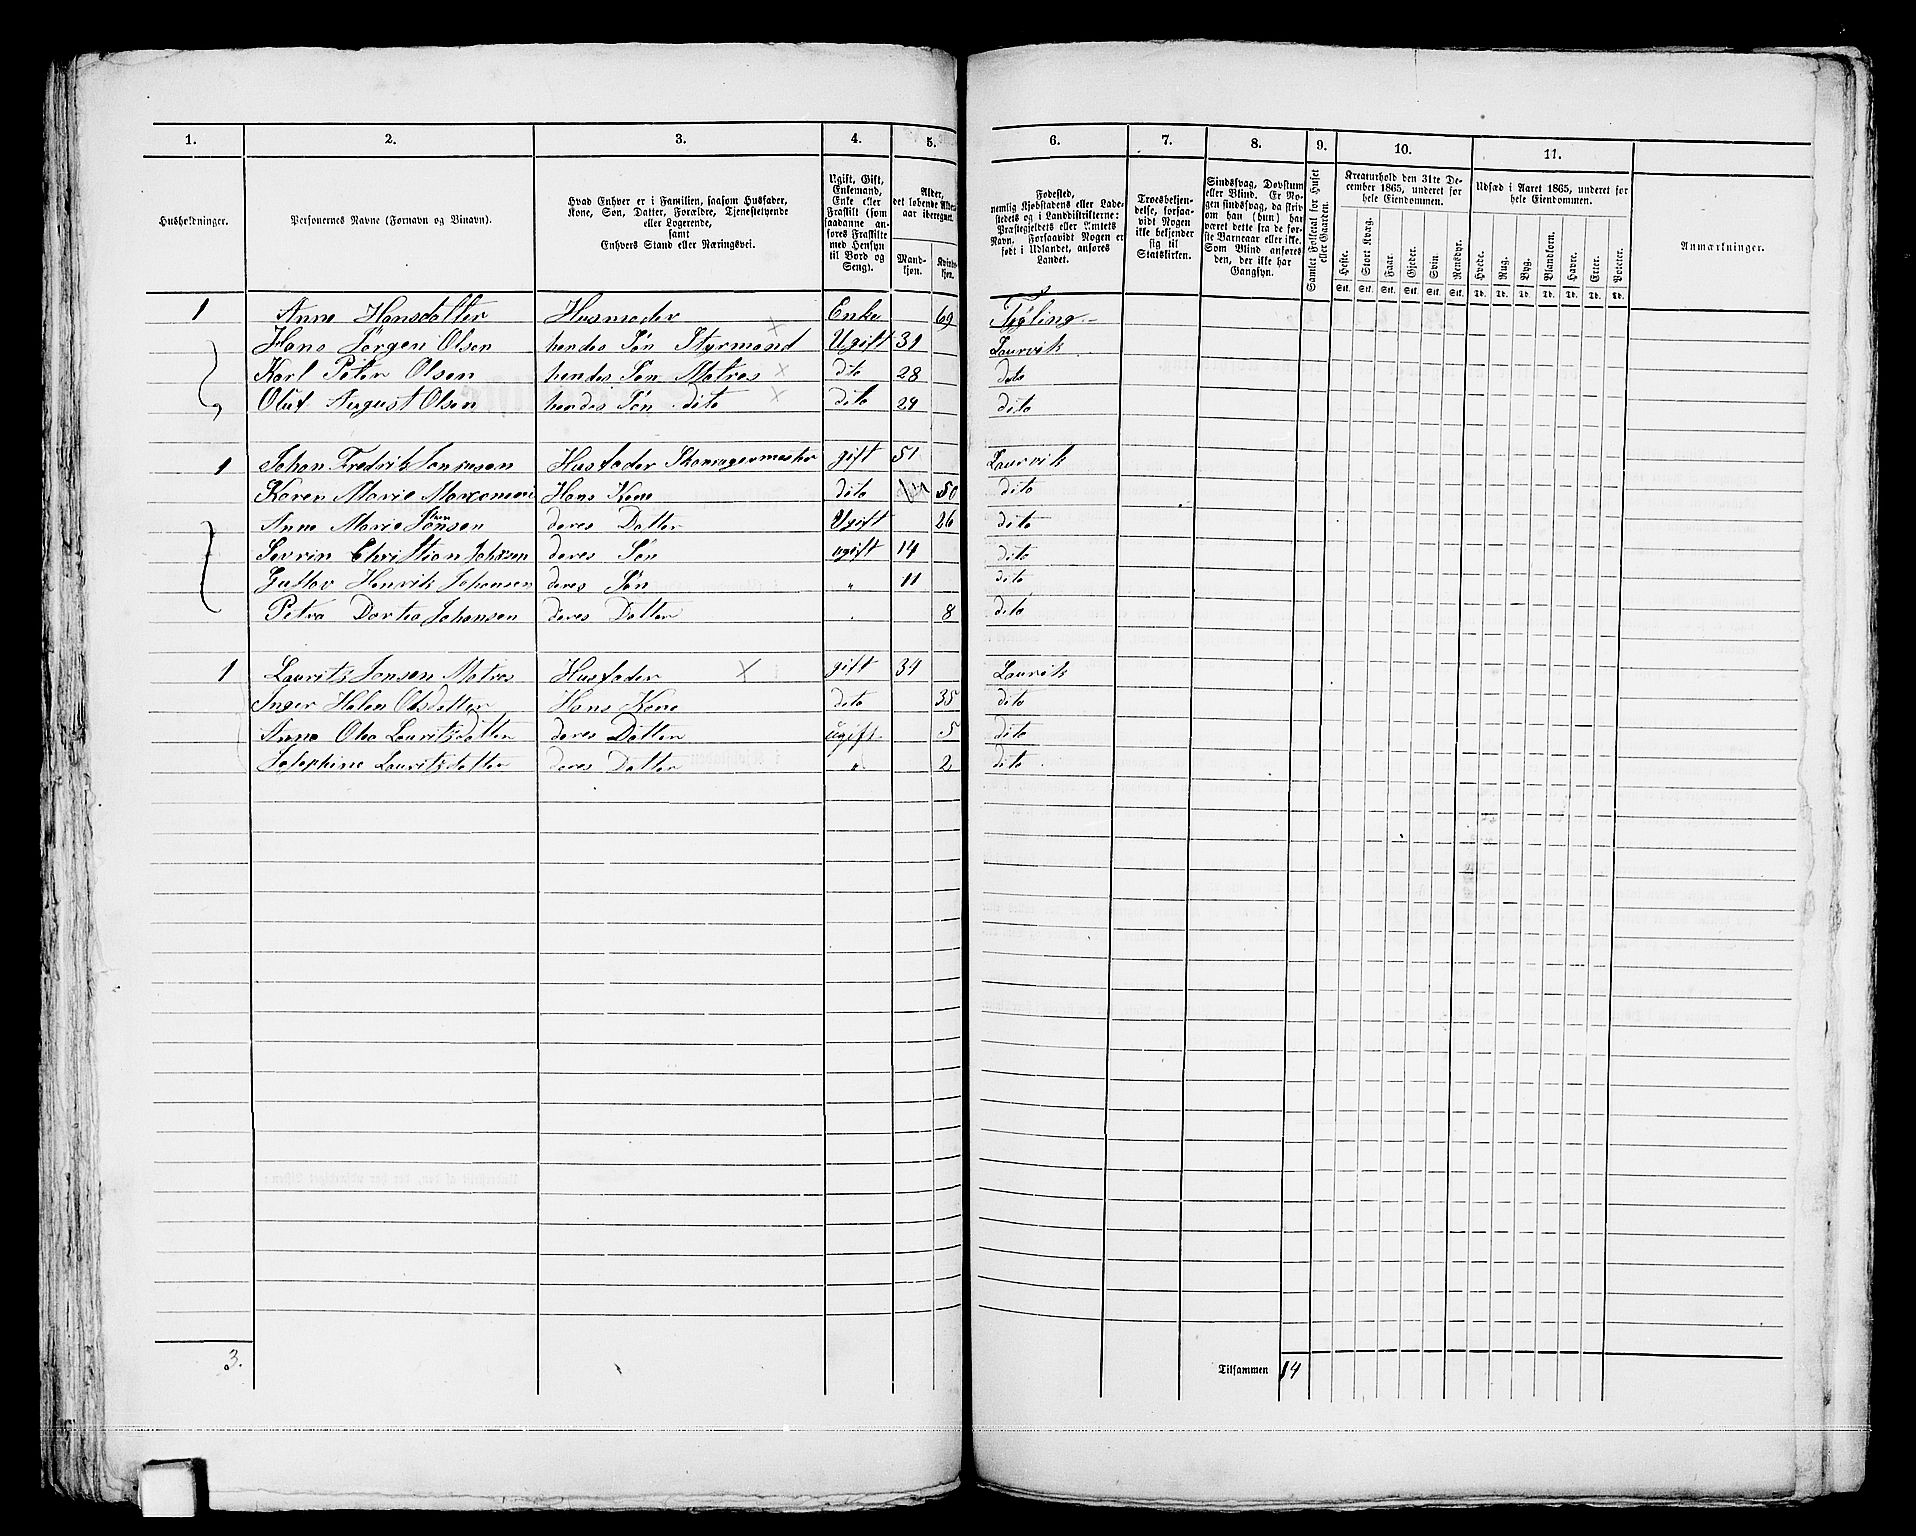 1. 2. 3. 4. 5. 6. 7. 8. 9. 10. 11.
Husholdninger.
Personernes Navne (Fornavn og Binavn).
Hvad Enhver er i Familien, saasom Husfader,
Kone, Søn, Datter, Forældre, Tjenestetyende
eller Logerende,
samt
Enhvers Stand eller Næringsvei.
Ugift, Gift,
Enkemand,
Enke eller
Fraskilt (som
saadanne an-
føres Fraskilte
med Hensyn
til Bord og
Seng).
Alder,
det løbende Alders-
aar iberegnet.
Mand-
kjøn.
Kvinde-
kjøn.
Fødested,
nemlig Kjøbstadens eller Lade-
stedets og i Landdistrikterne:
Præstegjeldets eller Amtets
Navn. Forsaavidt Nogen er
født i Udlandet, anføres
Landet.
Troesbekjen-
delse, forsaa-
vidt Nogen
ikke bekjender
sig til
Statskirken.
Sindssvag, Døvstum
eller Blind. Er No-
gen sindssvag, da skrives
om han (hun) har
været dette fra de før-
ste Barneaar eller ikke.
Som Blind anføres
den, der ikke har
Gangsyn.
Samlet Folketal for Huset
eller Gaarden.
Kreaturhold den 31te De-
cember 1865, underet for
hele Eiendommen.
Heste. Stort Kvæg. Faar. Gjeder. Svin. Rensdyr.
Stk. Stk. Stk. Stk. Stk. Stk.
Udsæd i Aaret 1865, underet for
hele Eiendommen.
Hvede. Rug. Byg. Blandkorn. Havre. Erter. Poteter.
Td. Td. Td. Td. Td. Td. Td.
Anmærkninger.
1 Anne Hansdatter Husmoder Enke 69 Tjøling
Hans Jørgen Olsen hendes Søn Styrmand Ugift 31 Laurvik
Karl Peter Olsen hendes Søn Matros dito 28 dito
Oluf August Olsen hendes Søn dito dito 24 dito
1 Johan Fredrik Husfader Skomagermester gift 51 Laurvik
Karen Marie Hans Kone dito 50 dito
Anne Marie deres Datter Ugift 26 dito
Sevrin Christian Johnsen deres Søn ugift 14 dito
Gustav Henrik Johansen deres Søn " 11 dito
Petra Dortea Johansen deres Datter " 8 dito
1 Lauritz Jonsen Matros Husfader gift 34 Laurvik
Inger Helen Olsdatter Hans Kone dito 35 dito
Anne Olea Lauritzdatter deres Datter ugift 5 dito
Josephine Lauritzdatter deres Datter " 2 dito
3. Tilsammen 14